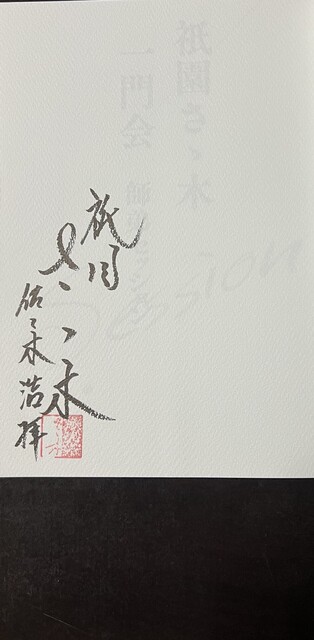 祇園さゝ木
一門会 師弟セッション
Session
祇園
さゝ木
佐々木浩拝